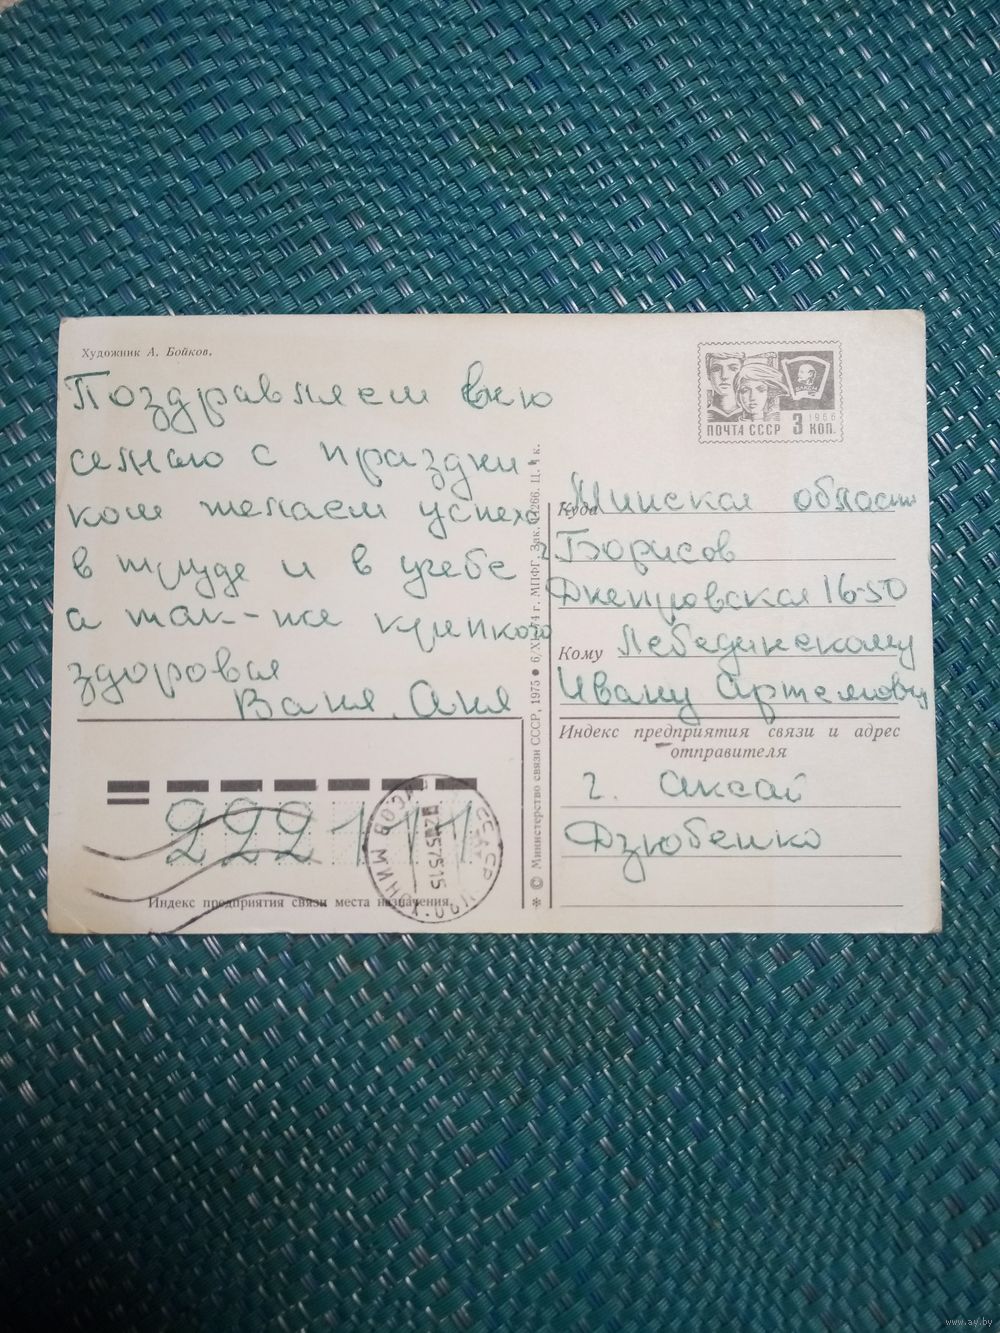 Художник А. Бойков.
Поздравляем всю
семью с праздни-
ком желаем успеха
в труде и в учебе
а так-же крепкого
здоровья
Ваня, Аня
ПОЧТА СССР 3 КОП.
1966
ВЛКСМ
Куда Минская область
г Борисов
Днепровская 16-50
Кому Лебединскому
Ивану Артемовичу
Индекс предприятия связи и адрес
отправителя
г. Аксай
Дзюбенко
222111
Индекс предприятия связи места назначения
✻ © Министерство связи СССР, 1975 ● 6/XI-74 г. МПФГ. Зак. Ц. 1 к.
www.ay.by